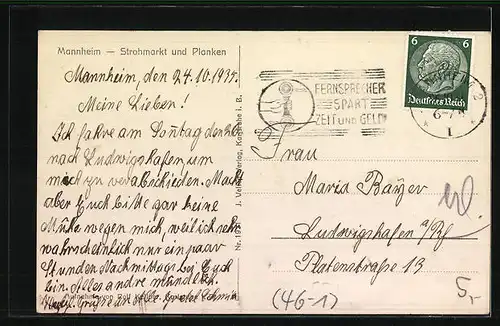 Mannheim — Strohmarkt und Planken
Mannheim, den 24.10.1934.
Meine Lieben!
Ich fahre am Sontag den
nach Ludwigshafen, um
mich zu verabschieden. Macht
aber Euch bitte gar keine
Mühe wegen mich, weil ich sehr
wahrscheinlich nur ein paar
Stunden Nachmittags bei Euch
bin. Alles andre mündlich.
Grüße
FERNSPRECHER
SPART
ZEIT UND GELD
6 6
Deutsches Reich
2
6-7
1
Frau
Maria Bayer
Ludwigshafen a/Rh
Platenstraße 13
(46-1)
5,-